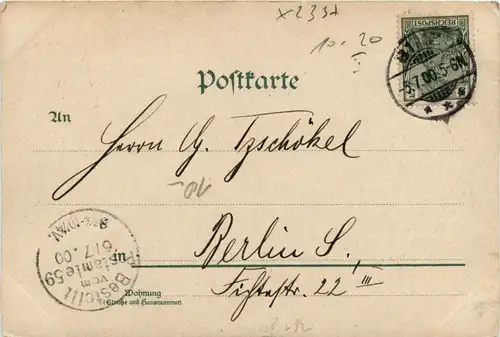 x 23st
10.20
I
REICHSPOST
7.00.5-6N.
Postkarte
An
Herrn G. Tzschökel
-10.
Bestellt
vom
Postamte 59
6/7.00
in Berlin S.,
Wohnung
(Straße und Hausnummer)
Fichtestr. 22 III